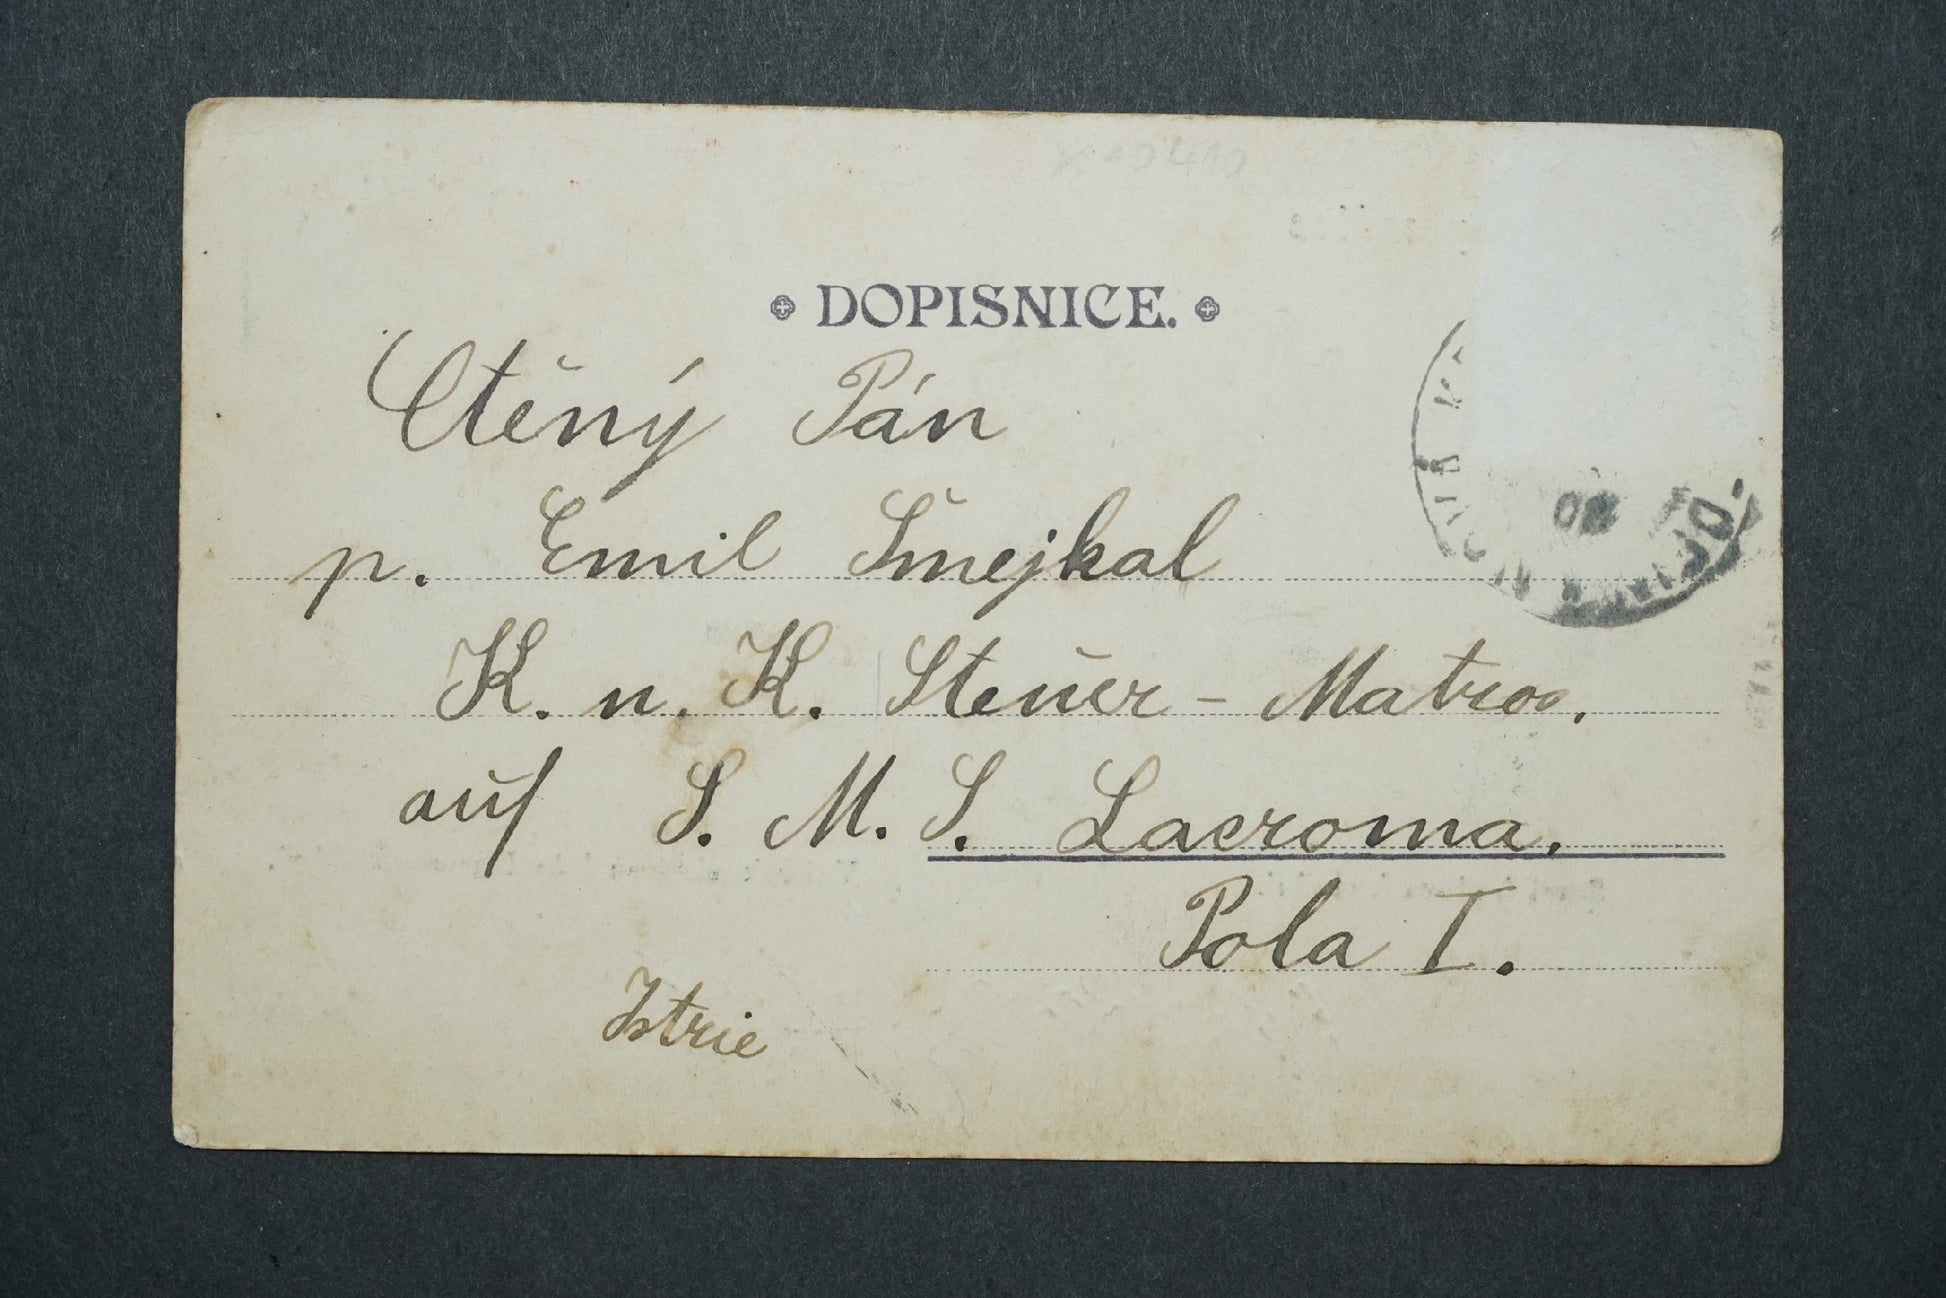 DOPISNICE.
Ctěný Pán
p. Emil Šmejkal
K. u. K. Steuer-Matros.
auf S. M. S. Lacroma.
Pola I.
Istrie